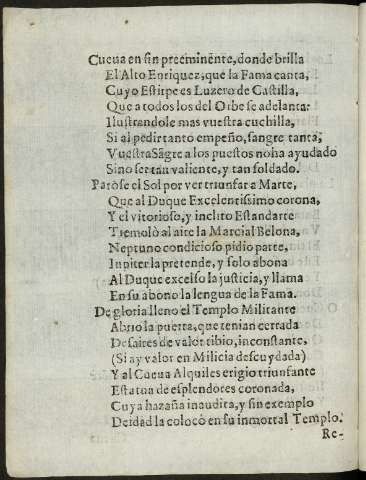 Cueua en fin preeminẽte, donde brilla
El Alto Enriquez, que la Fama canta,
Cuyo Estirpe es Luzero de Castilla,
Que a todos los del Orbe se adelanta:
Ilustrandole mas vuestra cuchilla,
Si al pedir tanto empeño, sangre tanta,
Vuestra Sãgre a los puestos no ha ayudado
Sino ser tan valiente, y tan soldado.
Paròse el Sol por ver triunfar a Marte,
Que al Duque Excelentissimo corona,
Y el vitorioso, y inclito Estandarte
Tremolò al aire la Marcial Belona,
Neptuno condicioso pidio parte,
Iupiter la pretende, y solo abona
Al Duque excelso la justicia, y llama
En su abono la lengua de la Fama.
De gloria lleno el Templo Militante
Abrio la puerta, que tenian cerrada
Desaires de valor tibio, inconstante,
(Si ay valor en Milicia descuydada)
Y al Cueua Alquiles erigio triunfante
Estatua de esplendores coronada,
Cuya hazaña inaudita, y sin exemplo
Deidad la colocò en su inmortal Templo.
Re-